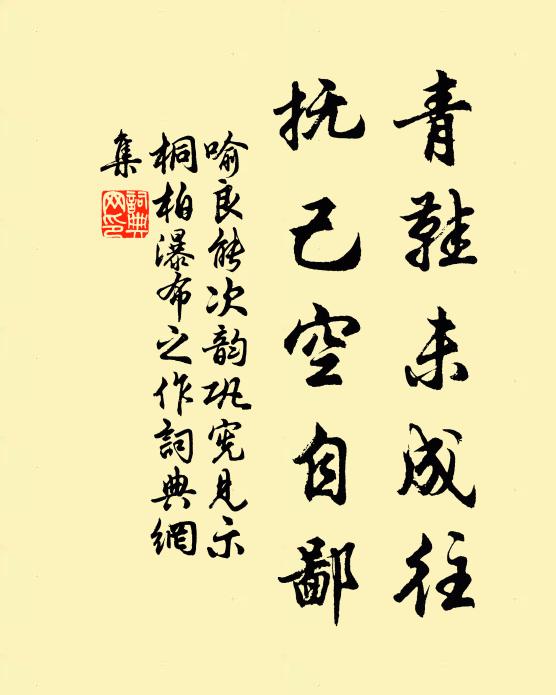 青鞋未成往
抚己空自鄙
喻良能次韵巩宪见示
桐柏瀑布之作詞典網
集
詞典
网印